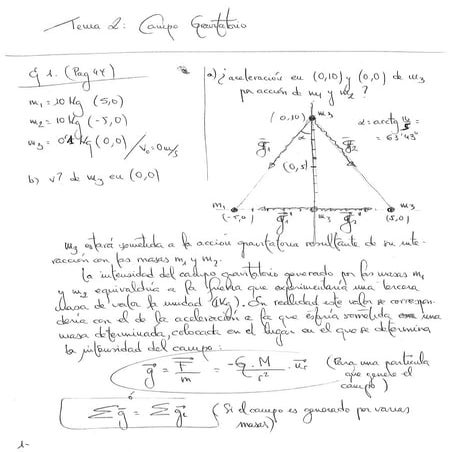 Tema 2: Campo Gravitatorio
Ej 1. (Pag 47)
m₁ = 10 Kg (5,0)
m₂ = 10 Kg (-5,0)
m₃ = 0'1 Kg (0,0) / v₀ = 0 m/s
b) v? de m₃ en (0,0)
a) ¿aceleración en (0,10) y (0,0) de m₃
por acción de m₁ y m₂?
(0,10) m₃
α
α = arctg
= 63'43°
g₁ g₂
(0,5)
m₁ m₃ m₂
(-5,0) g₁' g₂' (5,0)
m₃ estará sometida a la acción gravitatoria resultante de su inte-
racción con las masas m₁ y m₂.
La intensidad del campo gravitatorio generado por las masas m₁
y m₂ equivaldría a la fuerza que experimentaría una tercera
masa de valor la unidad (1Kg). En realidad este valor se correspon-
dería con el de la aceleración a la que estaría sometida una
masa determinada, colocada en el lugar en el que se determina
la intensidad del campo:
g = F/m = -G·M/r² · uᵣ (Para una partícula
que genere el
campo)
ó
Σg = Σgᵢ (Si el campo es generado por varias
masas)
1-